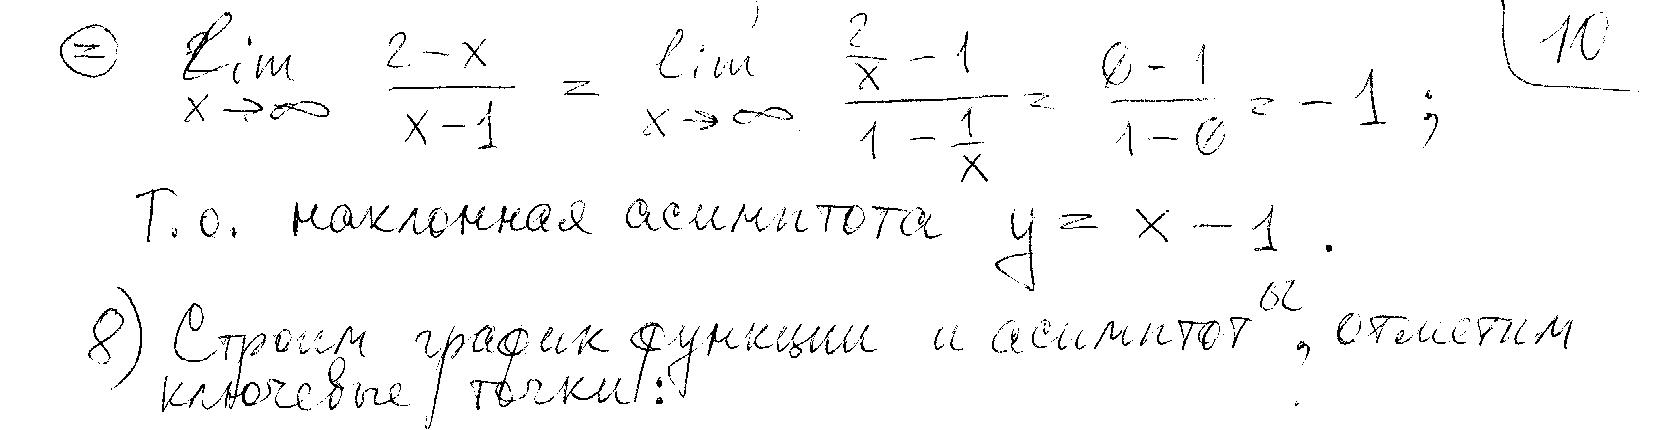 10
⊜ lim x→∞ (2-x)/(x-1) = lim x→∞ (2/x - 1)/(1 - 1/x) = (0-1)/(1-0) = -1;
Т.о. наклонная асимптота y = x - 1.
8) Строим график функции и асимптоты, отметим
ключевые точки: